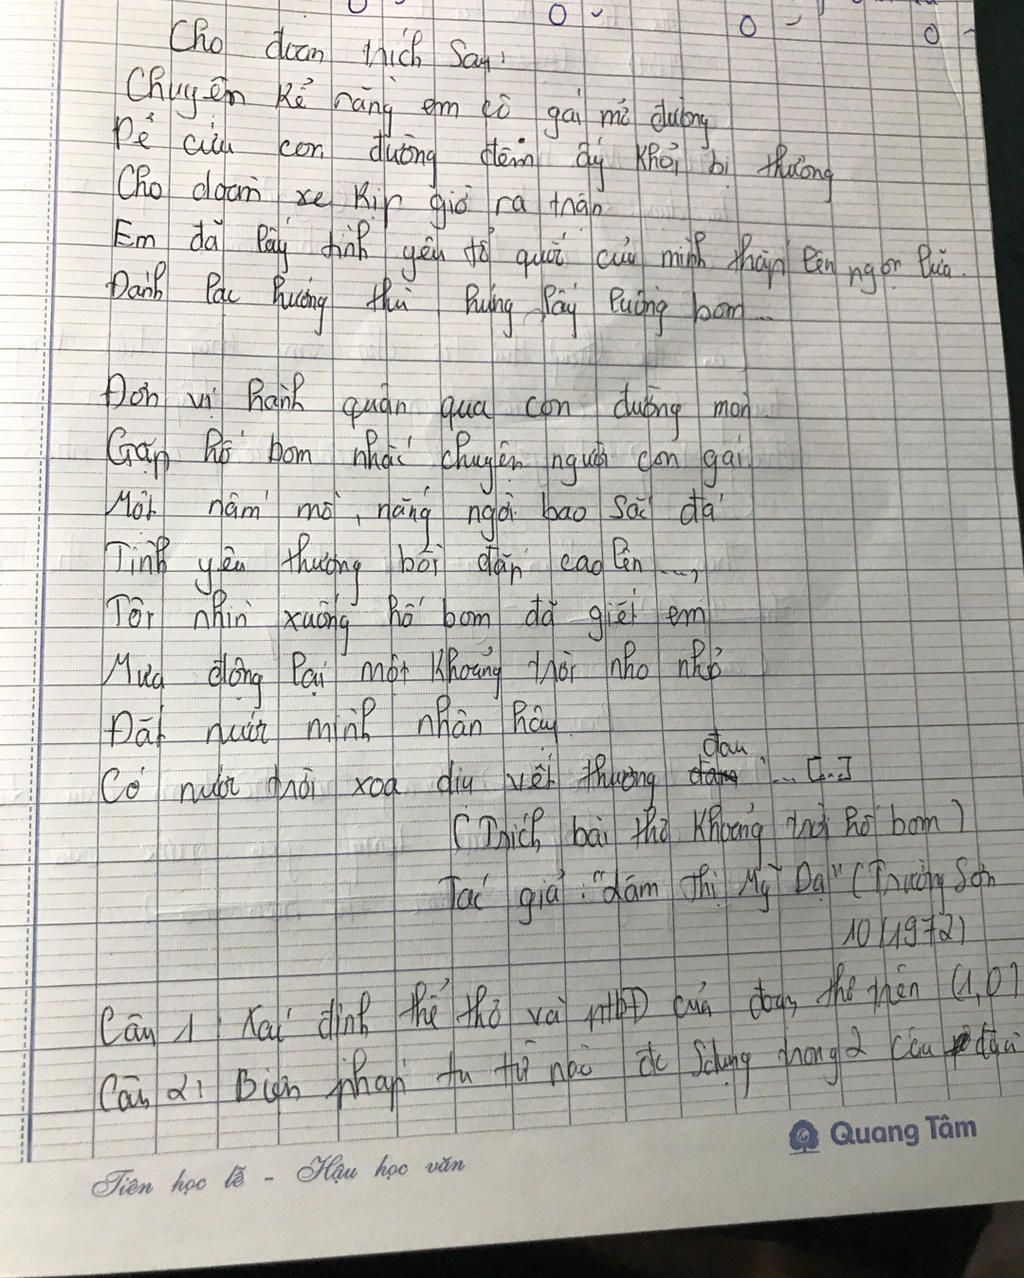 Cho đoạn trích sau:
Chuyện kể rằng em cô gái mở đường
Để cứu con đường đêm ấy khỏi bị thương
Cho đoàn xe kịp giờ ra trận
Em đã lấy tình yêu tổ quốc của mình thắp lên ngọn lửa.
Đánh lạc hướng thù, hứng lấy luồng bom...
Đơn vị hành quân qua con đường mòn
Gặp hố bom nhắc chuyện người con gái
Một nấm mồ, nắng ngời bao sắc đá
Tình yêu thương bồi đắp cao lên...,
Tôi nhìn xuống hố bom đã giết em
Mưa đọng lại một khoảng trời nho nhỏ
Đất nước mình nhân hậu
Có nước trời xoa dịu vết thương đau ... [...]
(Trích bài thơ Khoảng trời hố bom)
Tác giả: "Lâm Thị Mỹ Dạ" (Trường Sơn
10/1972)
Câu 1: Xác định thể thơ và ptbđ của đoạn thơ trên (1,0)
Câu 2: Biện pháp tu từ nào đc sdụng trong 2 câu đầu
Tiên học lễ - Hậu học văn
Quang Tâm